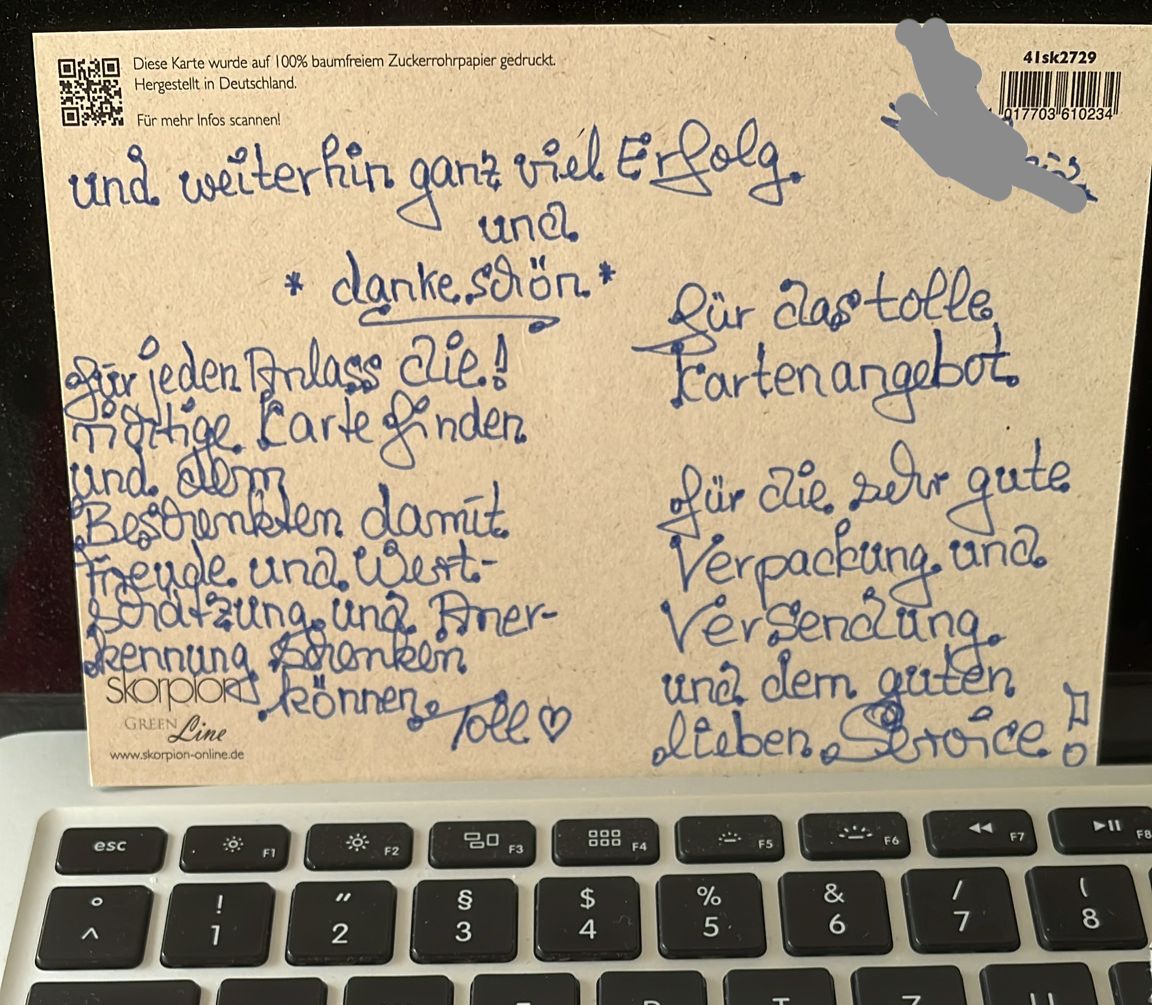 Diese Karte wurde auf 100% baumfreiem Zuckerrohrpapier gedruckt.
Hergestellt in Deutschland.
Für mehr Infos scannen!
41sk2729
017703 610234
und weiterhin ganz viel Erfolg.
und
* dankeschön *
für jeden Anlass die!
richtige Karte finden
und dem
Beschenkten damit
Freude und Wert-
schätzung und Aner-
kennung schenken
können. Toll ♡
für das tolle
Kartenangebot.
für die sehr gute
Verpackung und
Versendung.
und dem guten
lieben Service!
skorpion
GREEN Line
www.skorpion-online.de
esc
F1
F2
F3
F4
F5
F6
F7
F8
° ^
! 1
" 2
§ 3
$ 4
% 5
& 6
/ 7
( 8